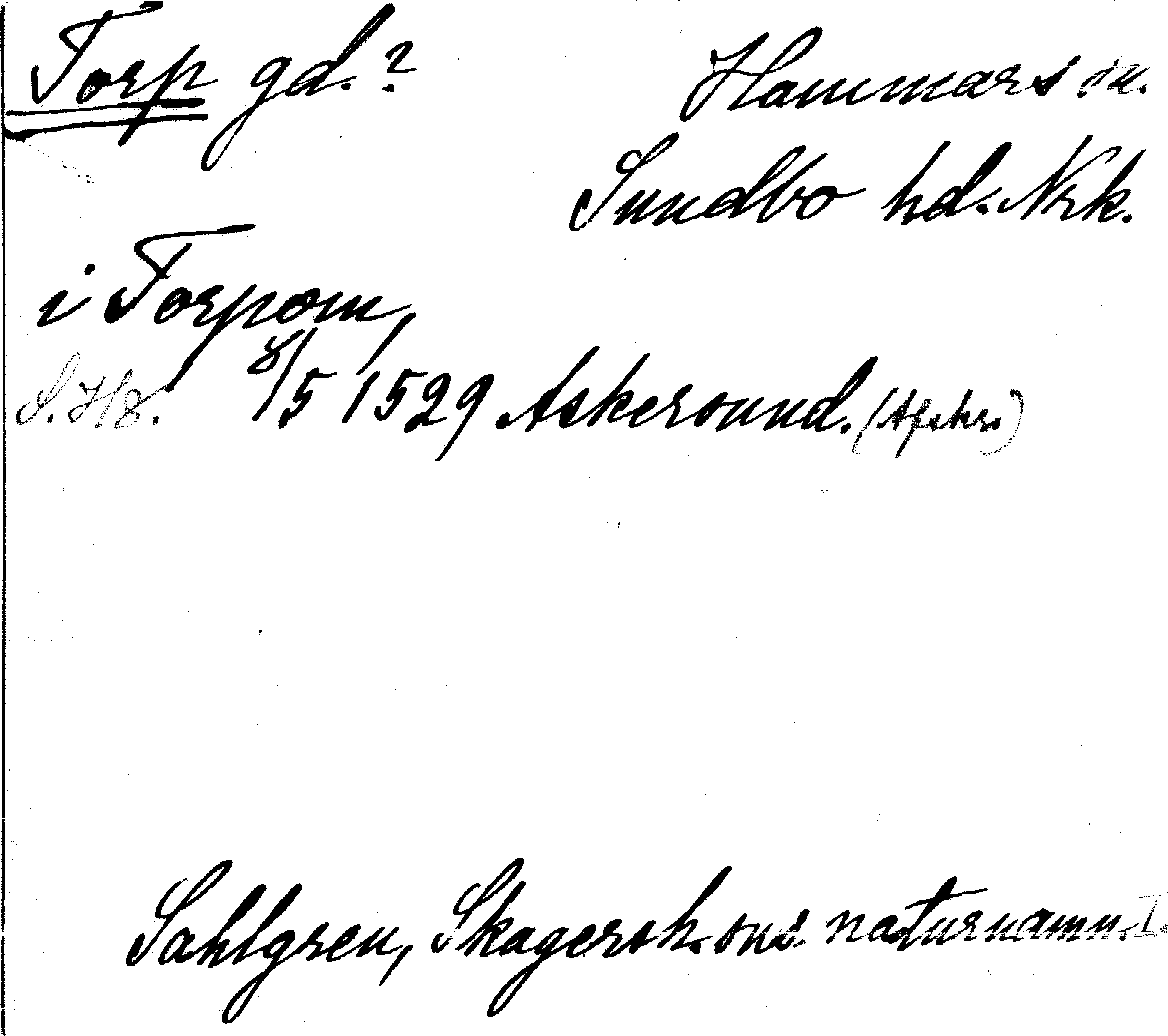 Torp gd.?
Hammars sn.
Sundbo hd. Nrk.
i Torpom,
8/5 1529 Askersund. (Afskr.)
Sahlgren, Skagersh. sns naturnamn. I.